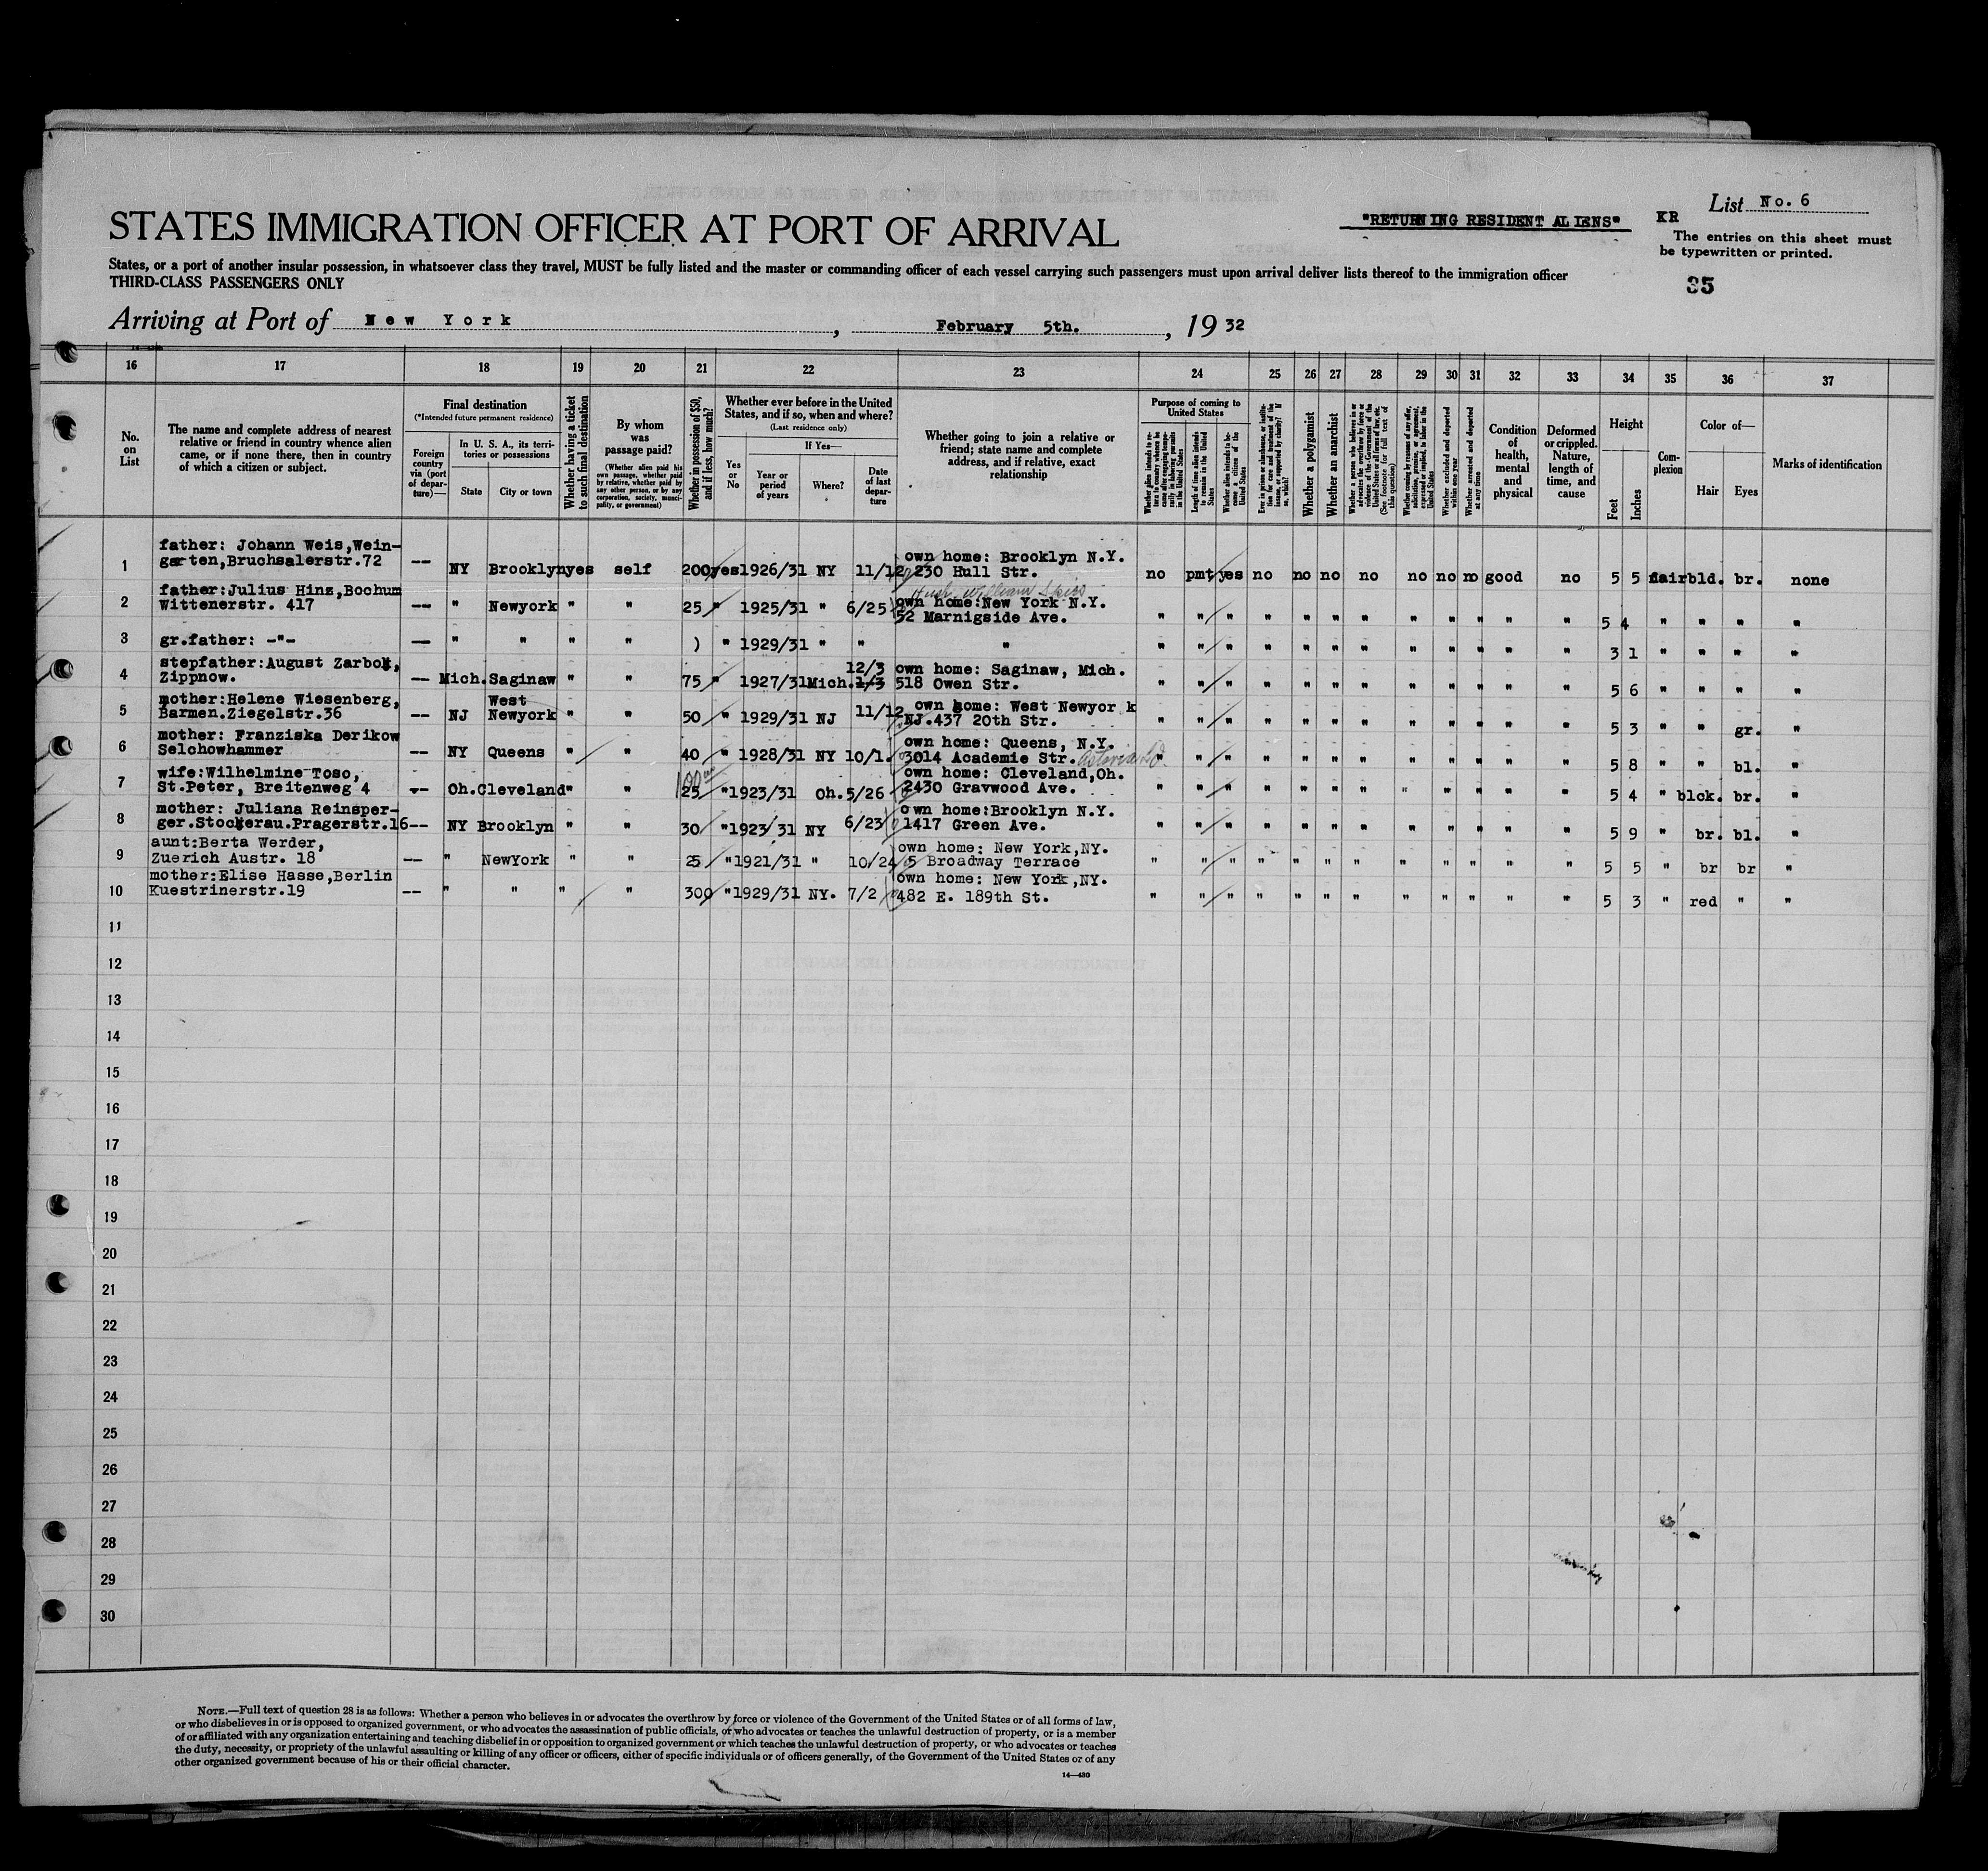 List No. 6
"RETURNING RESIDENT ALIENS"
KR
STATES IMMIGRATION OFFICER AT PORT OF ARRIVAL
The entries on this sheet must
be typewritten or printed.
States, or a port of another insular possession, in whatsoever class they travel, MUST be fully listed and the master or commanding officer of each vessel carrying such passengers must upon arrival deliver lists thereof to the immigration officer
THIRD-CLASS PASSENGERS ONLY
35
Arriving at Port of New York, February 5th., 19 32
16 17 18 19 20 21 22 23 24 25 26 27 28 29 30 31 32 33 34 35 36 37
No. on List
The name and complete address of nearest
relative or friend in country whence alien
came, or if none there, then in country
of which a citizen or subject.
Final destination
(*Intended future permanent residence)
Foreign country via (port of departure)—
In U. S. A., its territories or possessions
State
City or town
Whether having a ticket to such final destination
By whom was passage paid?
(Whether alien paid his own passage, whether paid by relative, whether paid by any other person, or by any corporation, society, municipality, or government)
Whether in possession of $50, and if less, how much?
Whether ever before in the United
States, and if so, when and where?
(Last residence only)
Yes or No
If Yes—
Year or period of years
Where?
Date of last departure
Whether going to join a relative or
friend; state name and complete
address, and if relative, exact
relationship
Purpose of coming to United States
Whether alien intends to return to country whence he came after engaging temporarily in laboring pursuits in the United States
Length of time alien intends to remain in the United States
Whether alien intends to become a citizen of the United States
Ever in prison or almshouse, or institution for care and treatment of the insane, or supported by charity? If so, which?
Whether a polygamist
Whether an anarchist
Whether a person who believes in or advocates the overthrow by force or violence of the Government of the United States or all forms of law, etc. (See footnote for full text of this question)
Whether coming by reasons of any offer, solicitation, promise, or agreement, expressed or implied, to labor in the United States
Whether excluded and deported within one year
Whether arrested and deported at any time
Condition of health, mental and physical
Deformed or crippled. Nature, length of time, and cause
Height
Feet
Inches
Complexion
Color of—
Hair
Eyes
Marks of identification
father: Johann Weis,Wein-
1 garten,Bruchsalerstr.72 -- NY Brooklyn yes self 200 yes 1926/31 NY 11/12 own home: Brooklyn N.Y.
230 Hull Str. no pmt yes no no no no no no no good no 5 5 fair bld. br. none
father:Julius Hinz,Bochum
2 Wittenerstr. 417 -- " Newyork " " 25 " 1925/31 " 6/25 own home:New York N.Y.
52 Marnigside Ave. " " " " " " " " " " " " 5 4 " " " "
3 gr.father: -"- -- " " " " ) " 1929/31 " " " " " " " " " " " " " " " 3 1 " " " "
stepfather:August Zarbok, 12/3 own home: Saginaw, Mich.
4 Zippnow. -- Mich. Saginaw " " 75 " 1927/31 Mich. 1/3 518 Owen Str. " " " " " " " " " " " " 5 6 " " " "
mother:Helene Wiesenberg, West own home: West Newyor k
5 Barmen.Ziegelstr.36 -- NJ Newyork " " 50 " 1929/31 NJ 11/12 NJ.437 20th Str. " " " " " " " " " " " " 5 3 " " gr. "
mother: Franziska Derikow own home: Queens, N.Y.
6 Selchowhammer -- NY Queens " " 40 " 1928/31 NY 10/1. 3014 Academie Str. " " " " " " " " " " " " 5 8 " " bl. "
wife:Wilhelmine Toso, 100 own home: Cleveland,Oh.
7 St.Peter, Breitenweg 4 -- Oh. Cleveland " " 25 " 1923/31 Oh. 5/26 2430 Gravwood Ave. " " " " " " " " " " " " 5 4 " blck. br. "
mother: Juliana Reinsper- own home:Brooklyn N.Y.
8 ger.Stockerau.Pragerstr.16 -- NY Brooklyn " " 30 " 1923/31 NY 6/23 1417 Green Ave. " " " " " " " " " " " " 5 9 " br. bl. "
aunt:Berta Werder, own home: New York,NY.
9 Zuerich Austr. 18 -- " NewYork " " 25 " 1921/31 " 10/24 5 Broadway Terrace " " " " " " " " " " " " 5 5 " br br "
mother:Elise Hasse,Berlin own home: New York,NY.
10 Kuestrinerstr.19 -- " " " " 300 " 1929/31 NY. 7/2 482 E. 189th St. " " " " " " " " " " " " 5 3 " red " "
11
12
13
14
15
16
17
18
19
20
21
22
23
24
25
26
27
28
29
30
NOTE.—Full text of question 28 is as follows: Whether a person who believes in or advocates the overthrow by force or violence of the Government of the United States or of all forms of law,
or who disbelieves in or is opposed to organized government, or who advocates the assassination of public officials, or who advocates or teaches the unlawful destruction of property, or is a member
of or affiliated with any organization entertaining and teaching disbelief in or opposition to organized government or which teaches the unlawful destruction of property, or who advocates or teaches
the duty, necessity, or propriety of the unlawful assaulting or killing of any officer or officers, either of specific individuals or of officers generally, of the Government of the United States or of any
other organized government because of his or their official character.
14—430